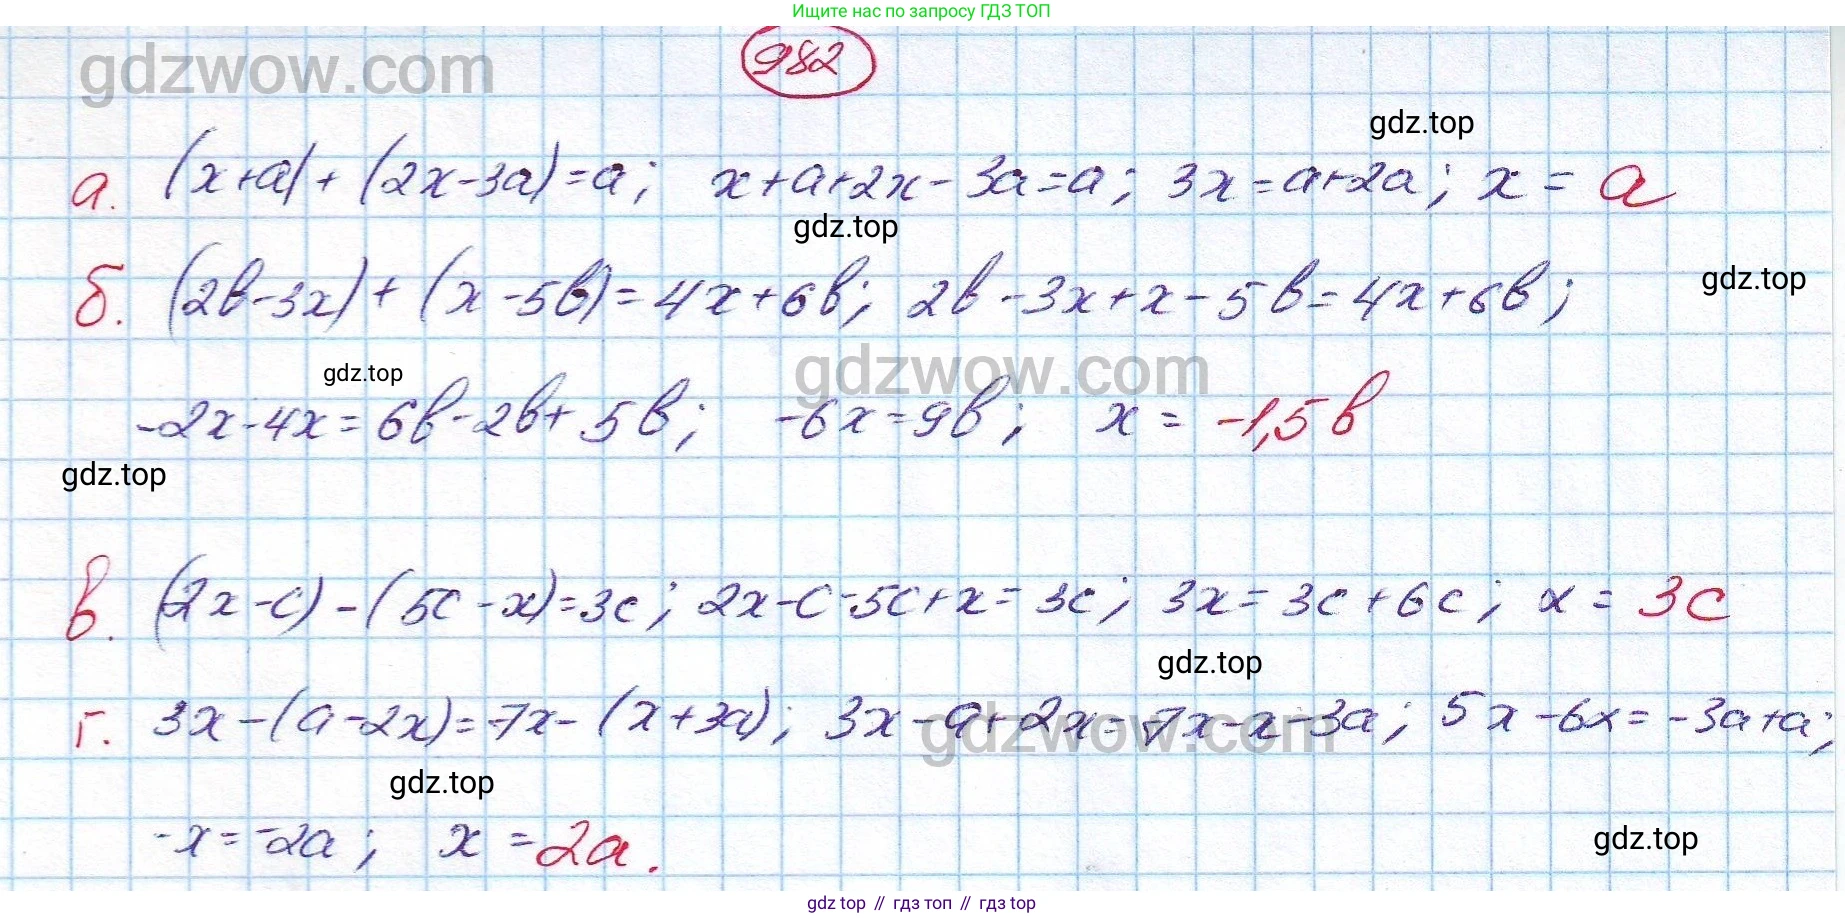 Ищите нас по запросу ГДЗ ТОП
gdzwow.com
982
gdz.top
а. (x+a)+(2x-3a)=a; x+a+2x-3a=a; 3x=a+2a; x=a
gdz.top
б. (2b-3x)+(x-5b)=4x+6b; 2b-3x+x-5b=4x+6b;
gdz.top
gdzwow.com
gdz.top
-2x-4x=6b-2b+5b; -6x=9b; x=-1,5b
gdz.top
в. (2x-c)-(5c-x)=3c; 2x-c-5c+x=3c; 3x=3c+6c; x=3c
gdz.top
г. 3x-(a-2x)=7x-(x+3a); 3x-a+2x=7x-x-3a; 5x-6x=-3a+a;
gdzwow.com
gdz.top
-x=-2a; x=2a.
gdz.top
gdz top // гдз топ // gdz top